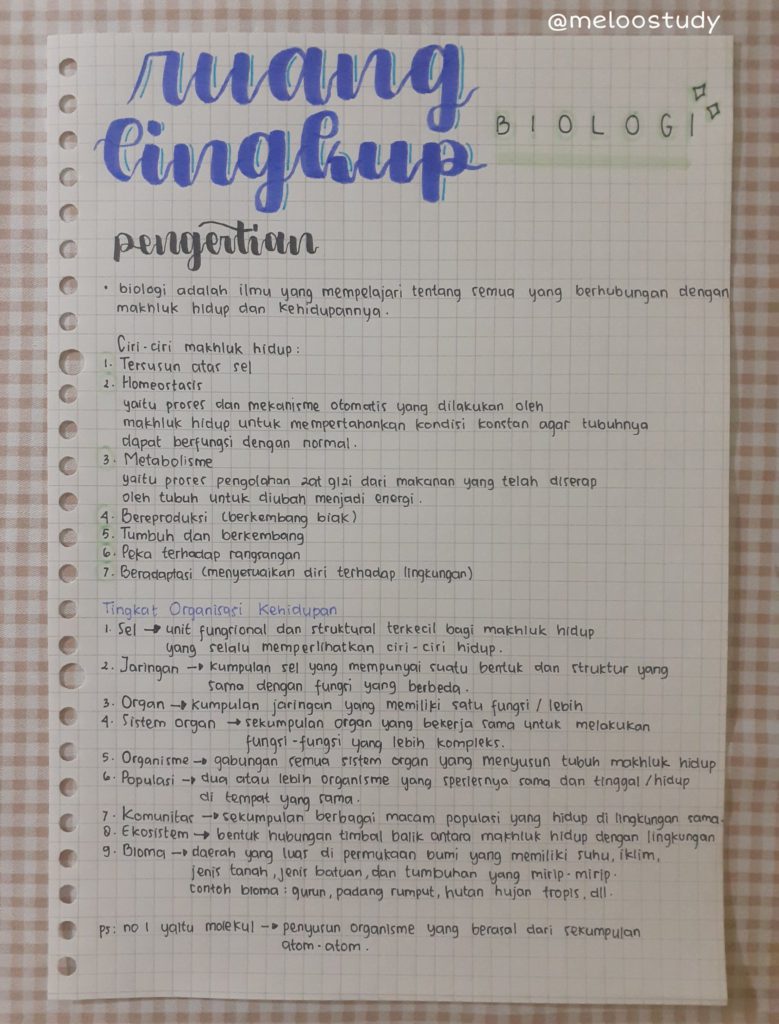 @meloostudy
ruang
lingkup
BIOLOGI
pengertian
• biologi adalah ilmu yang mempelajari tentang semua yang berhubungan dengan
makhluk hidup dan kehidupannya.
Ciri-ciri makhluk hidup :
1. Tersusun atas sel
2. Homeostasis
yaitu proses dan mekanisme otomatis yang dilakukan oleh
makhluk hidup untuk mempertahankan kondisi konstan agar tubuhnya
dapat berfungsi dengan normal.
3. Metabolisme
yaitu proses pengolahan zat gizi dari makanan yang telah diserap
oleh tubuh untuk diubah menjadi energi.
4. Bereproduksi (berkembang biak)
5. Tumbuh dan berkembang
6. Peka terhadap rangsangan
7. Beradaptasi (menyesuaikan diri terhadap lingkungan)
Tingkat Organisasi Kehidupan
1. Sel → unit fungsional dan struktural terkecil bagi makhluk hidup
yang selalu memperlihatkan ciri-ciri hidup.
2. Jaringan → kumpulan sel yang mempunyai suatu bentuk dan struktur yang
sama dengan fungsi yang berbeda.
3. Organ → kumpulan jaringan yang memiliki satu fungsi / lebih
4. Sistem organ → sekumpulan organ yang bekerja sama untuk melakukan
fungsi-fungsi yang lebih kompleks.
5. Organisme → gabungan semua sistem organ yang menyusun tubuh makhluk hidup
6. Populasi → dua atau lebih organisme yang spesiesnya sama dan tinggal / hidup
di tempat yang sama.
7. Komunitas → sekumpulan berbagai macam populasi yang hidup di lingkungan sama.
8. Ekosistem → bentuk hubungan timbal balik antara makhluk hidup dengan lingkungan
9. Bioma → daerah yang luas di permukaan bumi yang memiliki suhu, iklim,
jenis tanah, jenis batuan, dan tumbuhan yang mirip-mirip.
contoh bioma : gurun, padang rumput, hutan hujan tropis, dll.
ps: no 1 yaitu molekul → penyusun organisme yang berasal dari sekumpulan
atom-atom.